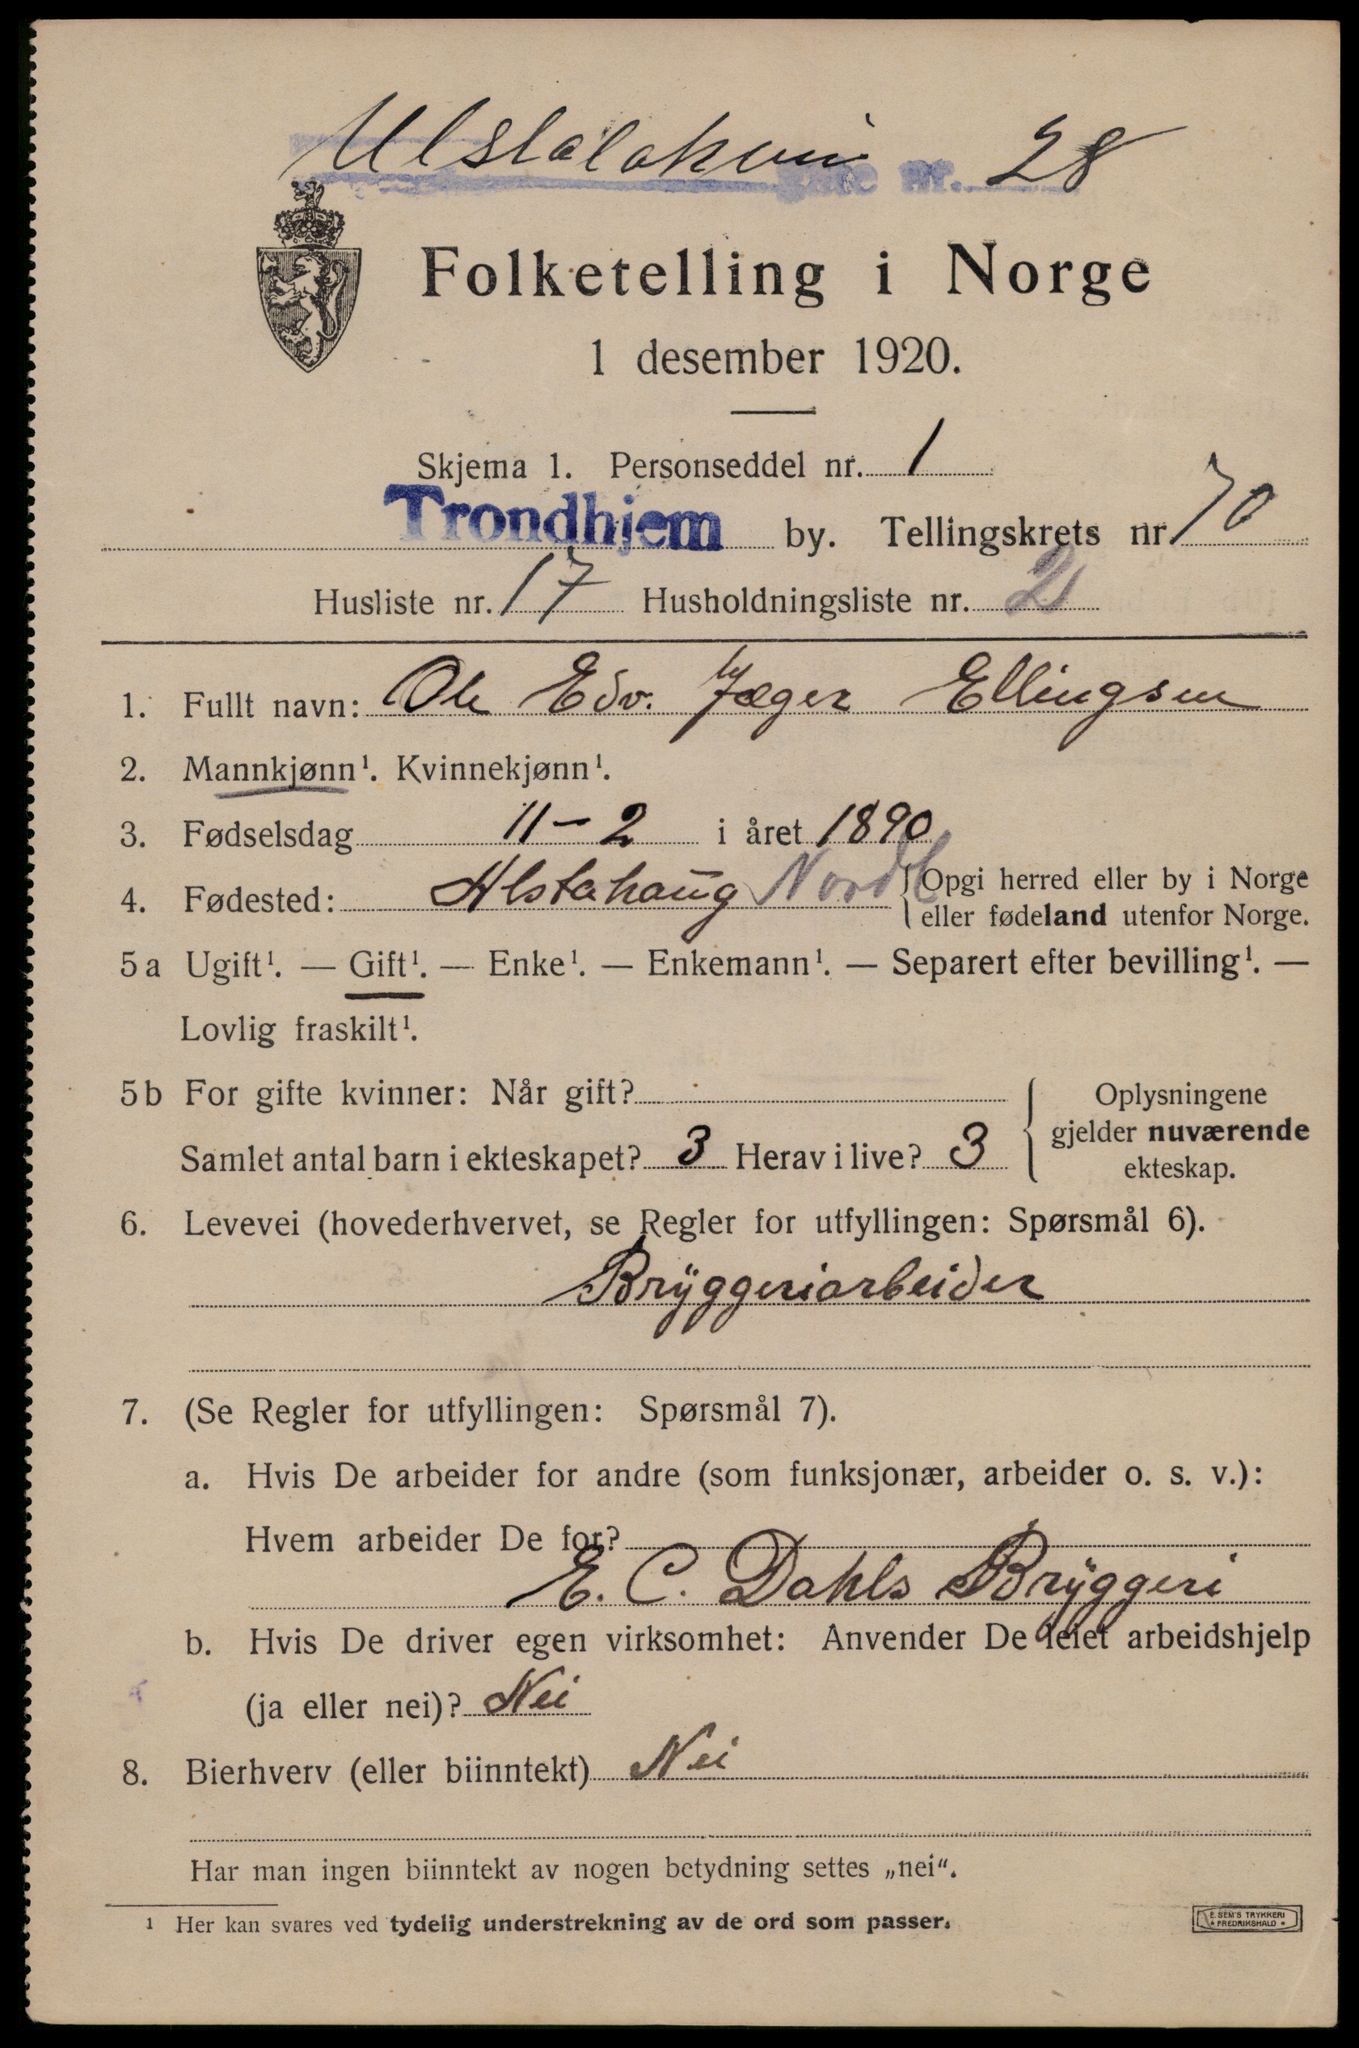 28
gate nr.
Folketelling i Norge
1 desember 1920.
Skjema 1. Personseddel nr. 1
Trondhjem by. Tellingskrets nr. 70
Husliste nr. 17 Husholdningsliste nr. 2
1. Fullt navn: Ole Edv. Jæger Ellingsen
2. Mannkjønn¹. Kvinnekjønn¹.
3. Fødselsdag 11-2 i året 1890
4. Fødested: Alstahaug Nordl {Opgi herred eller by i Norge
eller fødeland utenfor Norge.
5a Ugift¹. — Gift¹. — Enke¹. — Enkemann¹. — Separert efter bevilling¹. —
Lovlig fraskilt¹.
5b For gifte kvinner: Når gift?
Samlet antal barn i ekteskapet? 3 Herav i live? 3
{ Oplysningene
gjelder nuværende
ekteskap.
6. Levevei (hovederhvervet, se Regler for utfyllingen: Spørsmål 6).
Brÿggeriarbeider
7. (Se Regler for utfyllingen: Spørsmål 7).
a. Hvis De arbeider for andre (som funksjonær, arbeider o. s. v.):
Hvem arbeider De for?
E. C. Dahls Brÿggeri
b. Hvis De driver egen virksomhet: Anvender De leiet arbeidshjelp
(ja eller nei)? Nei
8. Bierhverv (eller biinntekt) Nei
Har man ingen biinntekt av nogen betydning settes „nei“.
¹ Her kan svares ved tydelig understrekning av de ord som passer.
E. SEM'S TRYKKERI
FREDRIKSHALD